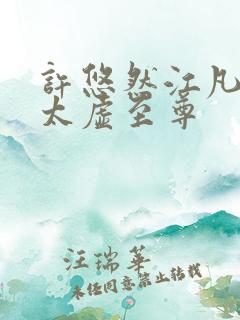 許悠然江凡
太虛至尊
汪瑞華
未经同意禁止转载